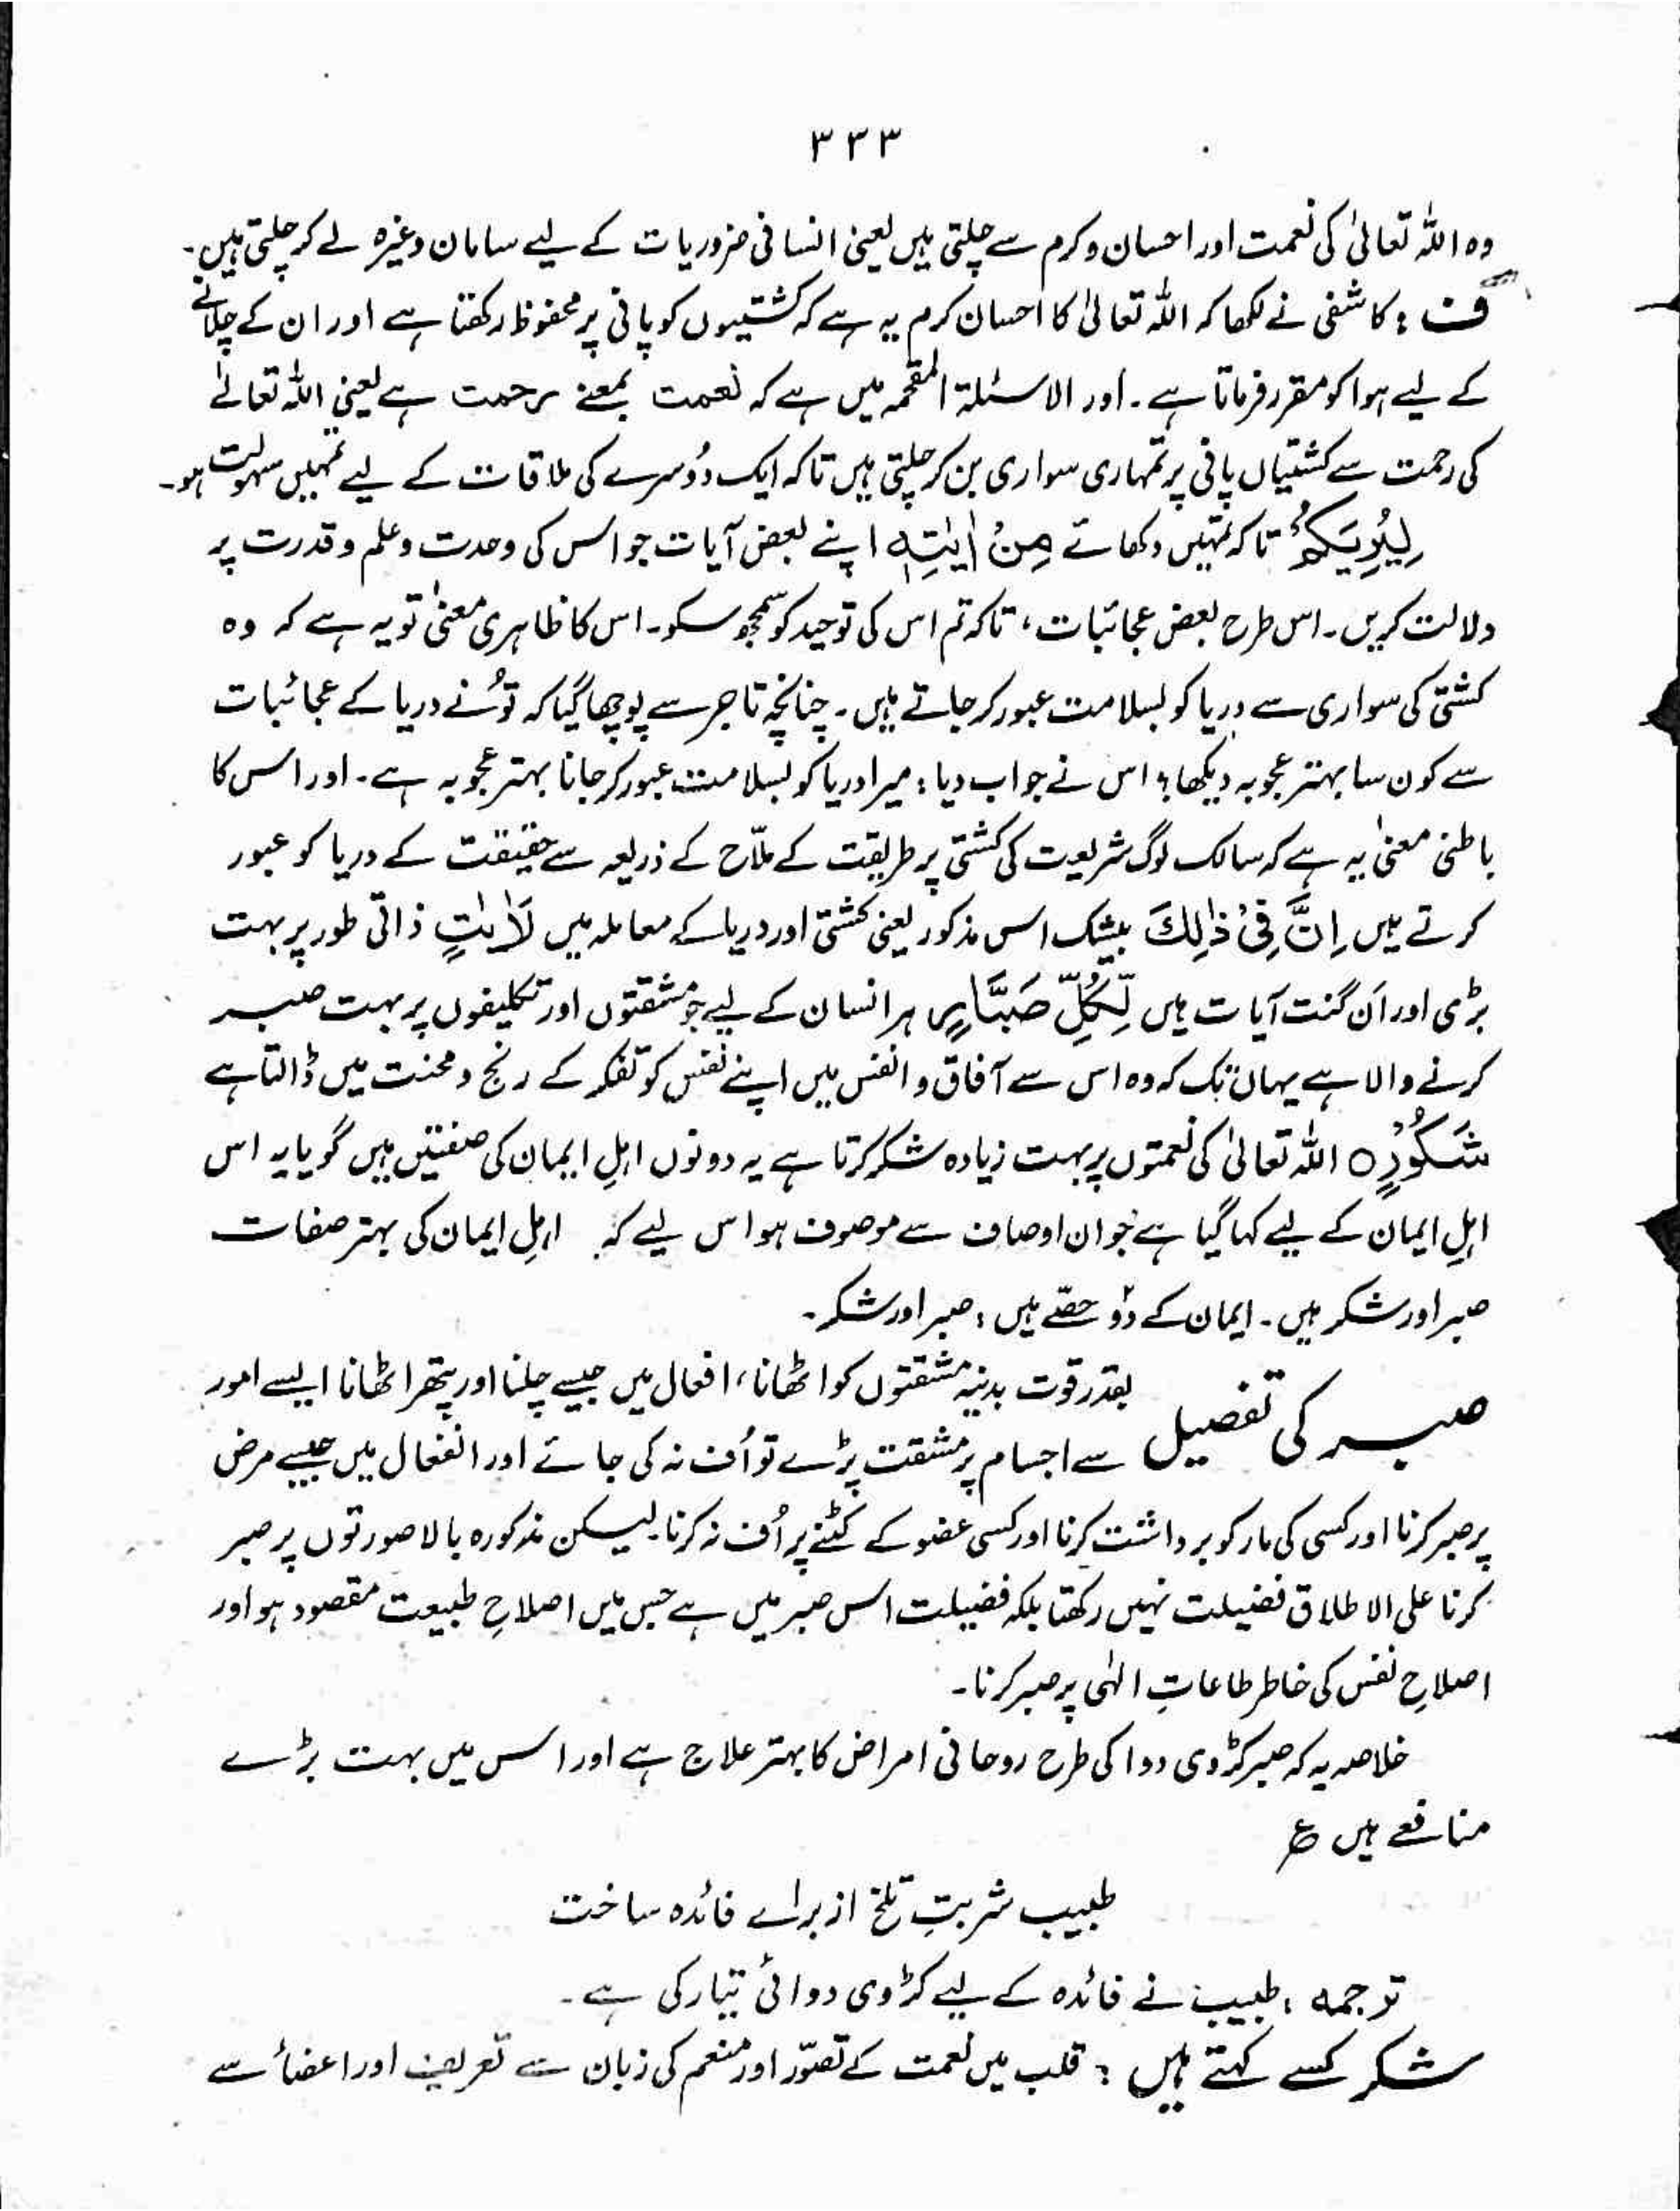 ۳۳۳
وہ اللہ تعالیٰ کی نعمت اور احسان و کرم سے چلتی ہیں یعنی انسانی ضروریات کے لیے سامان وغیرہ لے کر چلتی ہیں۔
ف : کاشفی نے لکھا کہ اللہ تعالیٰ کا احسان کرم یہ ہے کہ کشتیوں کو پانی پر محفوظ رکھتا ہے اور ان کے چلانے
کے لیے ہوا کو مقرر فرماتا ہے۔ اور الاسئلۃ المقحمہ میں ہے کہ نعمت بمعنے رحمت ہے یعنی اللہ تعالےٰ
کی رحمت سے کشتیاں پانی پر تمہاری سواری بن کر چلتی ہیں تاکہ ایک دُوسرے کی ملاقات کے لیے تمہیں سہولت ہو۔
لِیُرِیَکُمْ تاکہ تمہیں دکھائے مِنْ اٰیٰتِہٖ اپنے بعض آیات جو اس کی وحدت و علم و قدرت پر
دلالت کریں۔ اس طرح بعض عجائبات، تاکہ تم اس کی توحید کو سمجھ سکو۔ اس کا ظاہری معنیٰ تو یہ ہے کہ وہ
کشتی کی سواری سے دریا کو بسلامت عبور کر جاتے ہیں۔ چنانچہ تاجر سے پوچھا گیا کہ توُنے دریا کے عجائبات
سے کون سا بہتر عجوبہ دیکھا؟ اس نے جواب دیا : میرا دریا کو بسلامت عبور کر جانا بہتر عجوبہ ہے۔ اور اس کا
باطنی معنیٰ یہ ہے کہ سالک لوگ شریعت کی کشتی پر طریقت کے ملّاح کے ذریعہ سے حقیقت کے دریا کو عبور
کرتے ہیں اِنَّ فِیْ ذٰلِکَ بیشک اس مذکور یعنی کشتی اور دریا کے معاملہ میں لَاٰیٰتٍ ذاتی طور پر بہت
بڑی اور اَن گنت آیات ہیں لِّکُلِّ صَبَّارٍ ہر انسان کے لیے جو مشقتوں اور تکلیفوں پر بہت صبر
کرنے والا ہے یہاں تک کہ وہ اس سے آفاق و انفس میں اپنے نفس کو تفکر کے رنج و محنت میں ڈالتا ہے
شَکُوْرٍ ○ اللہ تعالیٰ کی نعمتوں پر بہت زیادہ شکر کرتا ہے یہ دونوں اہلِ ایمان کی صفتیں ہیں گویا یہ اس
اہلِ ایمان کے لیے کہا گیا ہے جو ان اوصاف سے موصوف ہو اس لیے کہ اہلِ ایمان کی بہتر صفات
صبر اور شکر ہیں۔ ایمان کے دوُ حصّے ہیں : صبر اور شکر۔
صبر کی تفصیل بقدر قوت بدنیہ مشقتوں کو اٹھانا، افعال میں جیسے چلنا اور پتھر اٹھانا ایسے امور
سے اجسام پر مشقت پڑے تو اُف نہ کی جائے اور انفعال میں جیسے مرض
پر صبر کرنا اور کسی کی مار کو برداشت کرنا اور کسی عضو کے کٹنے پر اُف نہ کرنا۔ لیکن مذکورہ بالا صورتوں پر صبر
کرنا علی الاطلاق فضیلت نہیں رکھتا بلکہ فضیلت اس صبر میں ہے جس میں اصلاحِ طبیعت مقصود ہو اور
اصلاحِ نفس کی خاطر طاعاتِ الٰہی پر صبر کرنا۔
خلاصہ یہ کہ صبر کڑوی دوا کی طرح روحانی امراض کا بہتر علاج ہے اور اس میں بہت بڑے
منافع ہیں ؏
طبیب شربتِ تلخ از براے فائدہ ساخت
ترجمہ : طبیب نے فائدہ کے لیے کڑوی دوائی تیار کی ہے۔
شکر کسے کہتے ہیں : قلب میں نعمت کے تصوّر اور منعم کی زبان سے تعریف اور اعضأ سے